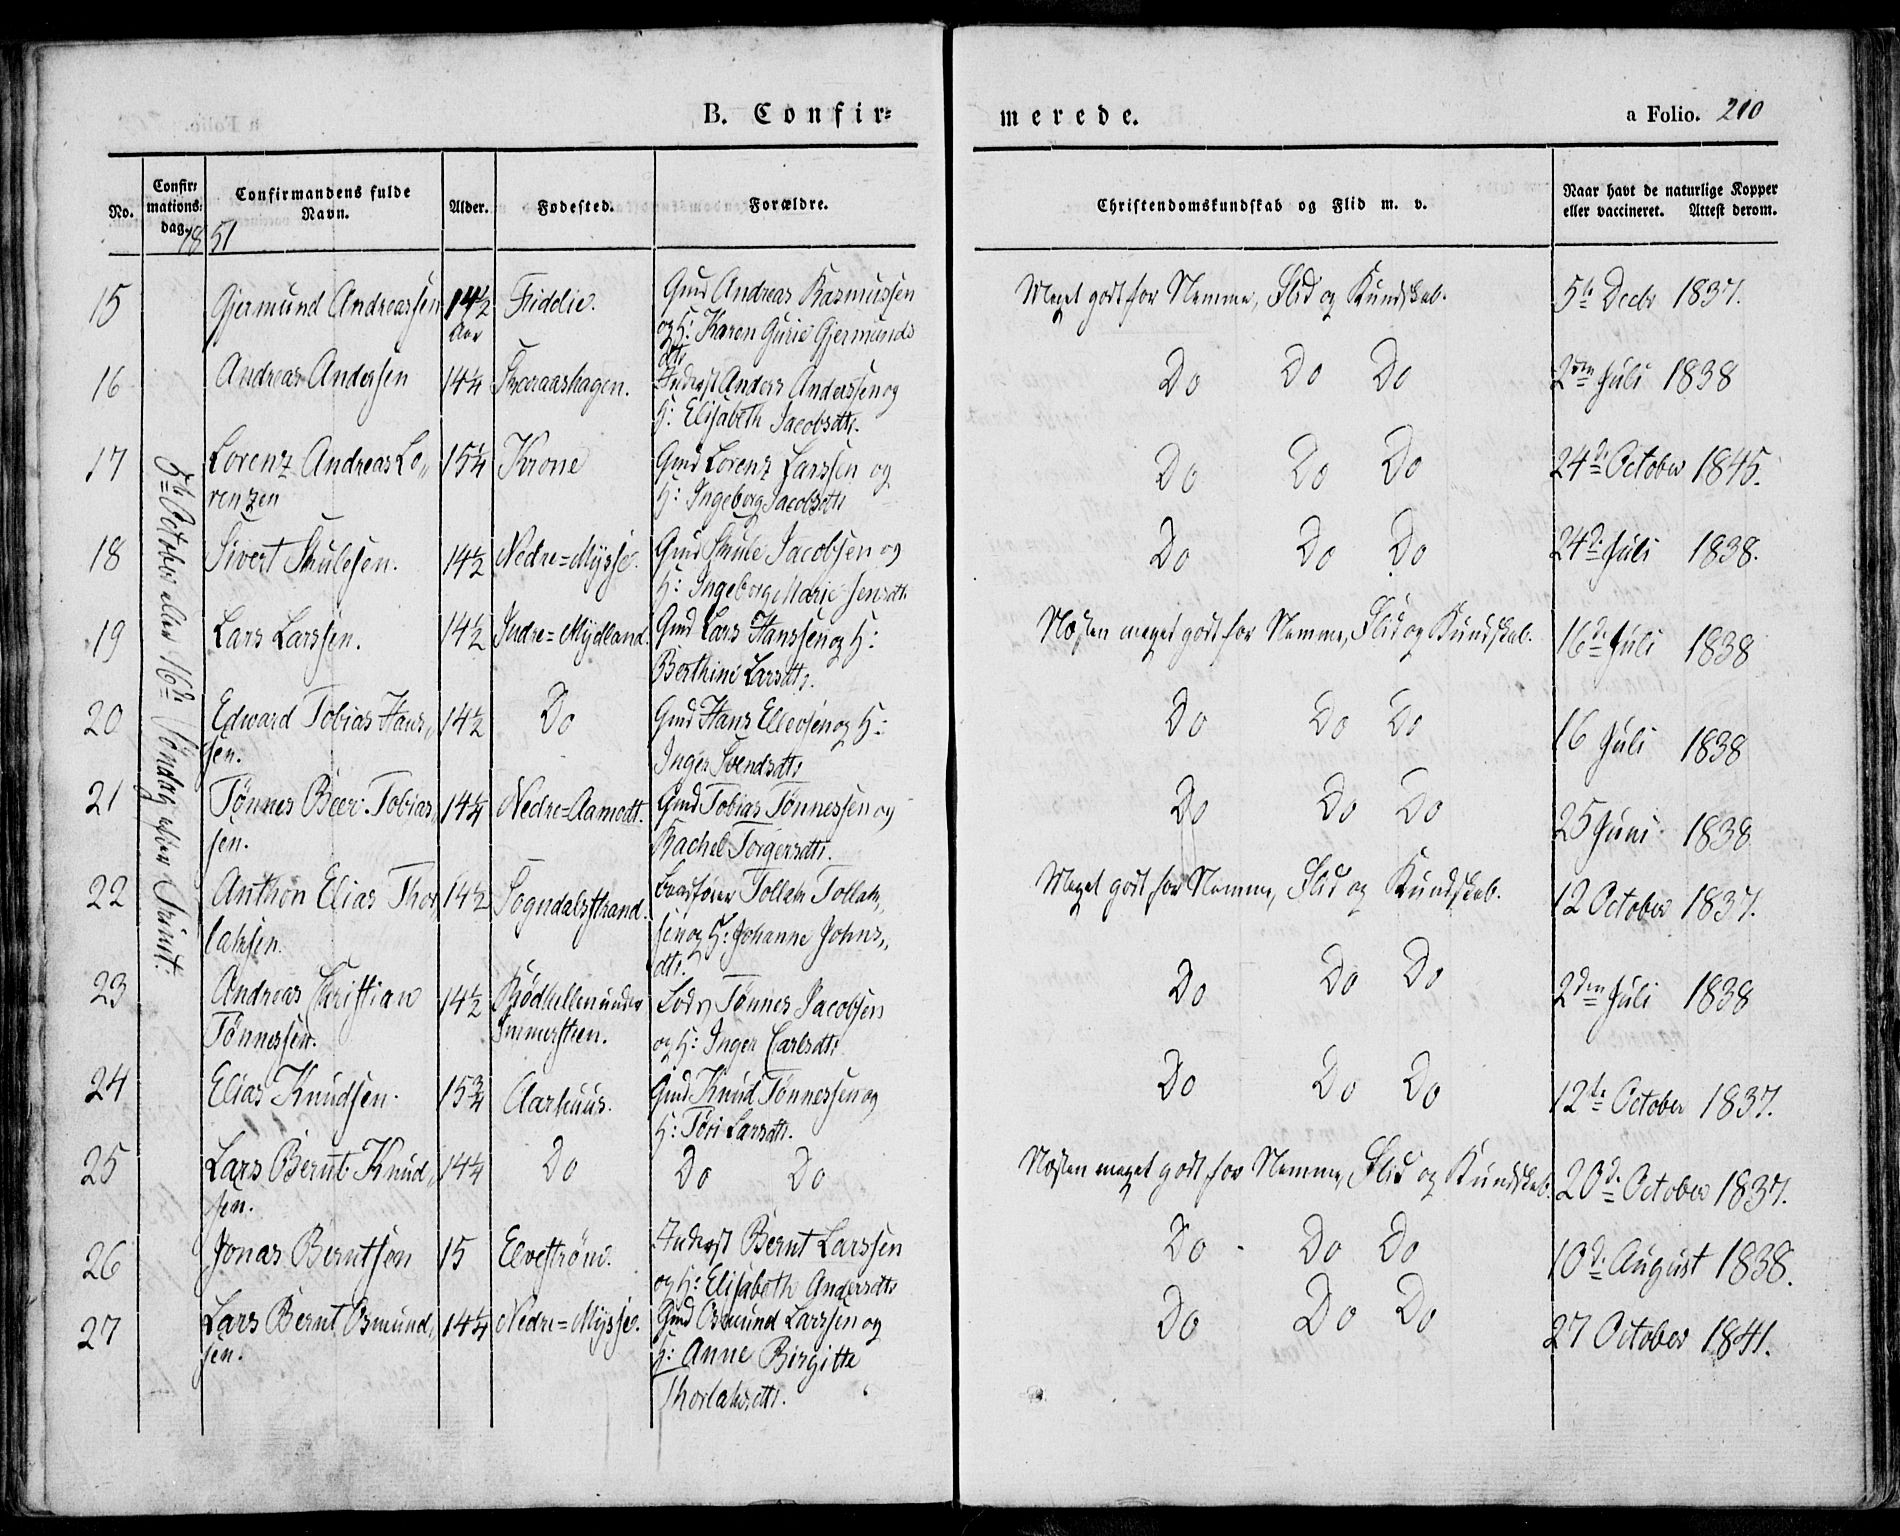 B. Confir=
merede.
a Folio. 210
No.
Confir=
mations=
dag.
Confirmandens fulde
Navn.
Alder.
Fødested.
Forældre.
Christendomskundskab og Flid m. v.
Naar havt de naturlige Kopper
eller vaccineret. Attest derom.
1851
5te October eller 16de Søndag efter Trinit:
15 Gjermund Andreassen 14½ Aar Fiddie. Gmd Andreas Rasmussen
og H: Karen Gurie Gjermunds
dtr
Meget godt for Nemme, Flid og Kundskab. 5te Decbr 1837.
16 Andreas Andersen 14¼ Skaraashagen. Inderst Anders Anderssen og
H: Elisabeth Jacobsdtr.
Do Do Do 2den Juli 1838
17 Lorenz Andreas Lo„ 15¼ Krone Gmd Lorenz Larssen og
renzen H: Ingeborg Jacobsdtr
Do Do Do 24de October 1845.
18 Sivert Skulesen. 14½ Nedre=Mysse. Gmd Skule Jacobsen og
H: Ingeborg Marie Jensdtr
Do Do Do 24de Juli 1838.
19 Lars Larssen. 14½ Indre=Mydland. Gmd Lars Hanssen og H:
Berthine Larsdtr.
Næsten meget godt for Nemme, Flid og Kundskab. 16de Juli 1838
20 Edward Tobias Hans„ 14½ Do Gmd Hans Ellevsen og H:
sen. Inger Svendsdtr
Do Do Do 16 Juli 1838
21 Tønnes Beer Tobias„ 14¼ Nedre=Aamodt. Gmd Tobias Tønnessen og
sen. Rachel Torgersdtr.
Do Do Do 25 Juni 1838
22 Anthon Elias Thor 14½ Sogndalsstrand. Tollak Tollak„
laksen. sen og H: Johanne Johns„
dtr.
Meget godt for Nemme, Flid og Kundskab. 12 October 1837.
23 Andreas Christian 14½ Rødhellen under Lods Tønnes Jacobsen
Tønnessen. Immerstien. og H: Inger Carlsdtr
Do Do Do 2den Juli 1838
24 Elias Knudsen. 15¾ Aarhuus. Gmd Knud Tønnessen og
H: Tøri Larsdtr.
Do Do Do 12te October 1837.
25 Lars Bernt Knud„ 14¼ Do Do Do
sen.
Næsten meget godt for Nemme, Flid og Kundskab. 20de October 1837.
26 Jonas Berntsen 15 Elvestrøm. Inderst Bernt Larssen
og H: Elisabeth Andersdtr
Do Do Do 10de August 1838.
27 Lars Bernt Osmund„ 14¼ Nedre=Mysse. Gmd Osmund Larssen og
sen. H: Anne Birgitte
Thorlaksdtr.
Do Do Do 27 October 1841.